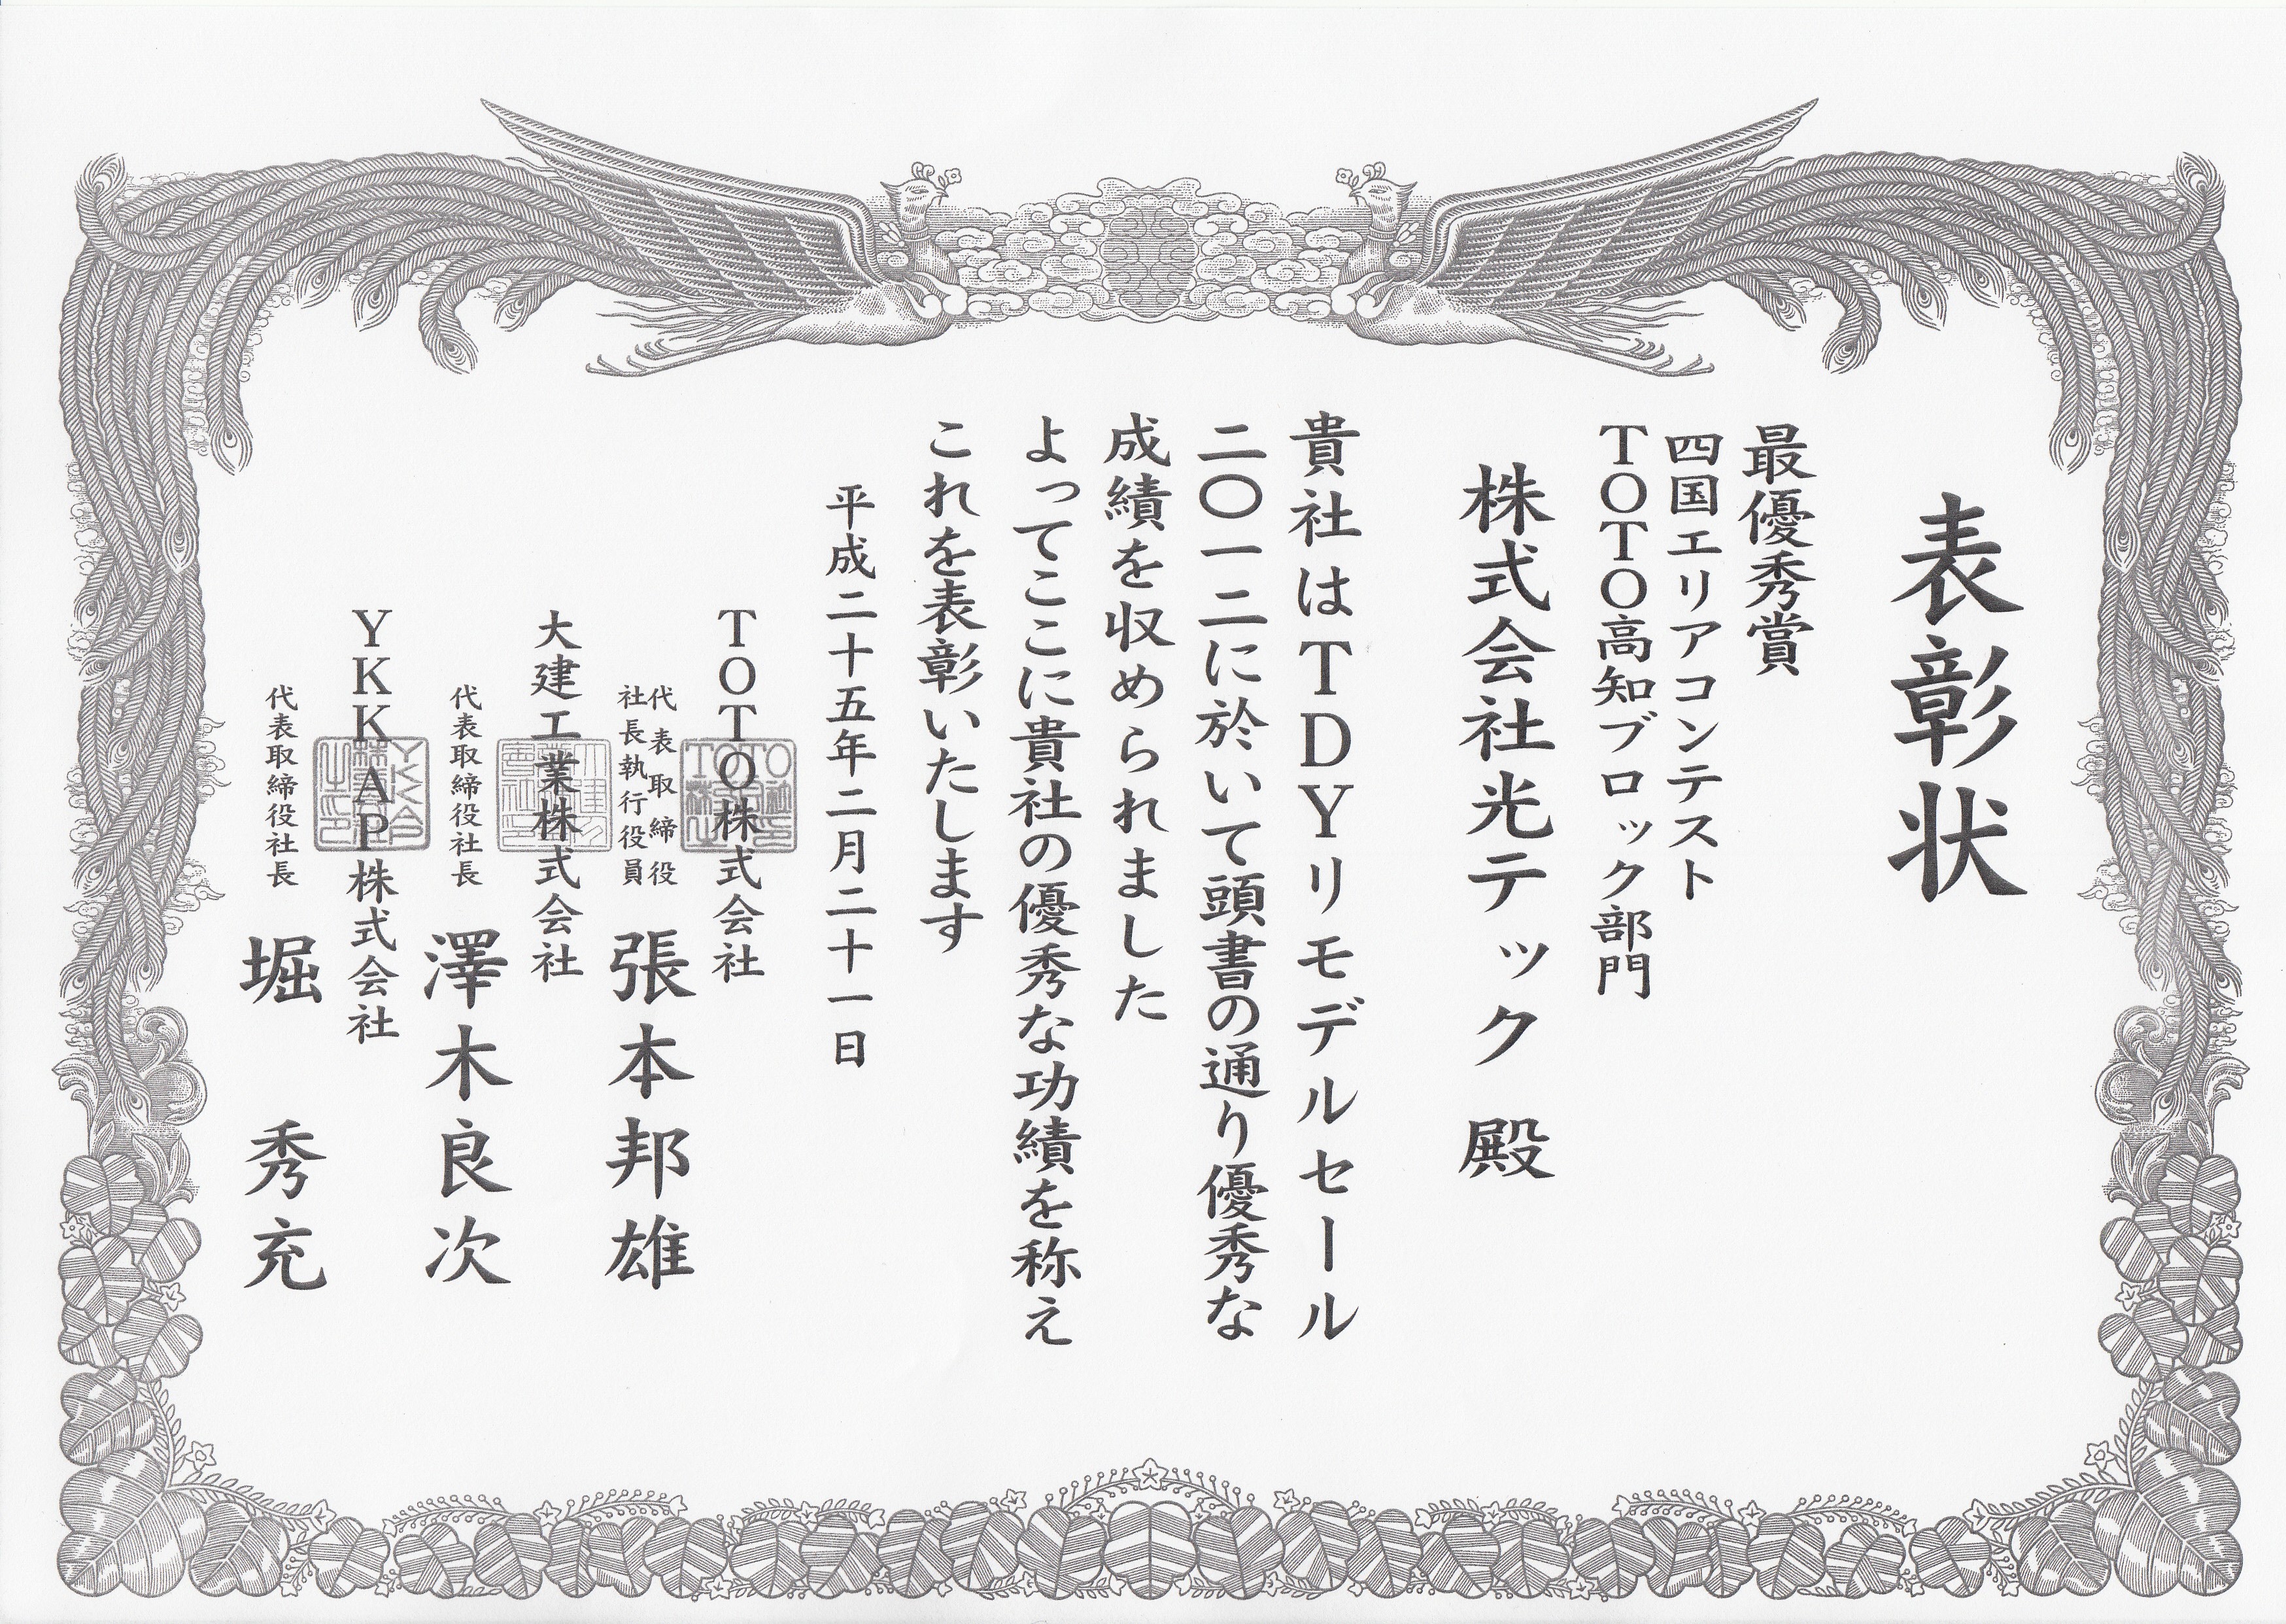 表彰状
最優秀賞
四国エリアコンテスト
TOTO高知ブロック部門
株式会社光テック 殿
貴社はTDYリモデルセール
二〇一二に於いて頭書の通り優秀な
成績を収められました
よってここに貴社の優秀な功績を称え
これを表彰いたします
平成二十五年二月二十一日
TOTO株式会社
代表取締役
社長執行役員
張本邦雄
大建工業株式会社
代表取締役社長 澤木良次
YKK AP株式会社
代表取締役社長 堀 秀充